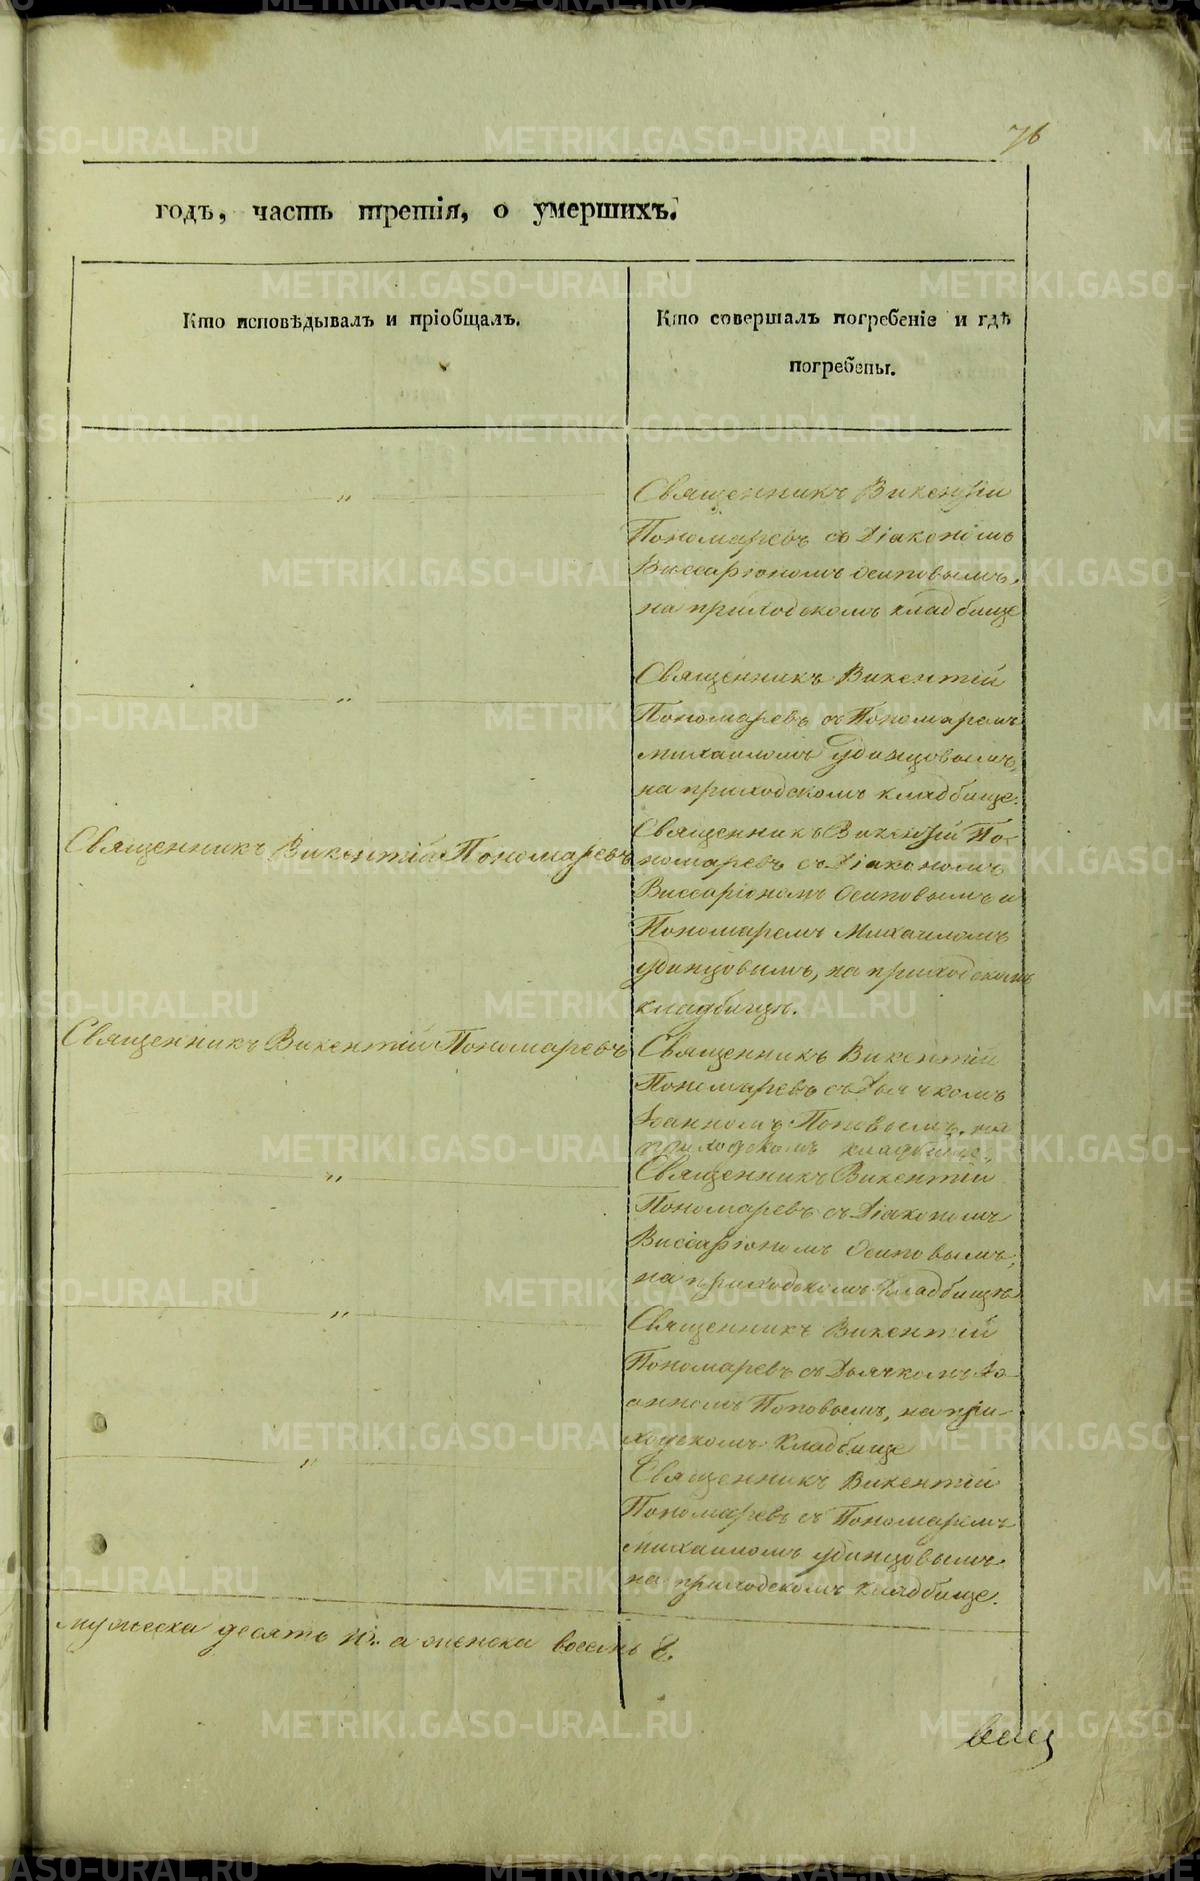 76
годъ, часть третія, о умершихъ.
Кто исповѣдывалъ и пріобщалъ.
Кто совершалъ погребеніе и гдѣ
погребены.
"
Священникъ Викентій
Пономаревъ съ Діакономъ
Виссаріономъ Осиповымъ,
на приходскомъ кладбище
"
Священникъ Викентій
Пономаревъ съ Пономаремъ
Михаиломъ Удинцовымъ,
на приходскомъ кладбище.
Священникъ Викентій Пономаревъ
Священникъ Викентій По-
номаревъ съ Діакономъ
Виссаріономъ Осиповымъ и
Пономаремъ Михаиломъ
Удинцовымъ, на приходскомъ
кладбищѣ.
Священникъ Викентій Пономаревъ
Священникъ Викентій
Пономаревъ съ Дьячкомъ
Іоанномъ Поповымъ, на
приходскомъ кладбище.
"
Священникъ Викентій
Пономаревъ съ Діакономъ
Виссаріономъ Осиповымъ,
на приходскомъ кладбищѣ
"
Священникъ Викентій
Пономаревъ съ Дьячкомъ Іо-
анномъ Поповымъ, на при-
ходскомъ кладбище
"
Священникъ Викентій
Пономаревъ съ Пономаремъ
Михаиломъ Удинцовымъ
на приходскомъ кладбище.
мужеска десять 10. а женска восемь 8.
METRIKI.GASO-URAL.RU